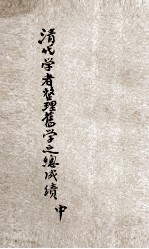 清代学者整理舊学之總成績 中